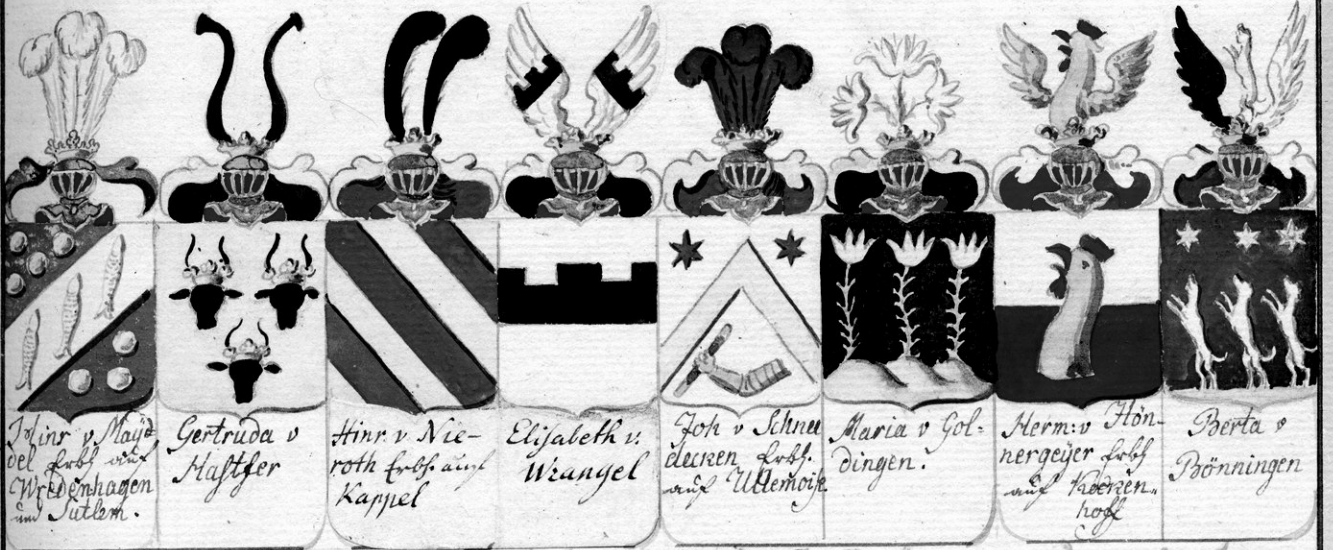 Hinr v Maÿd,
del Erbh auf
Wredenhagen
und Sutlem.
Gertruda v
Hastfer
Hinr. v Nie-
roth Erbh. auf
Kappel
Elisabeth v:
Wrangel
Joh v Schnee
decken Erbh.
auf Ullemoise
Maria v Gol-
dingen.
Herm: v Hön-
nergeÿer Erbh
auf
hoff
Berta v
Bönningen